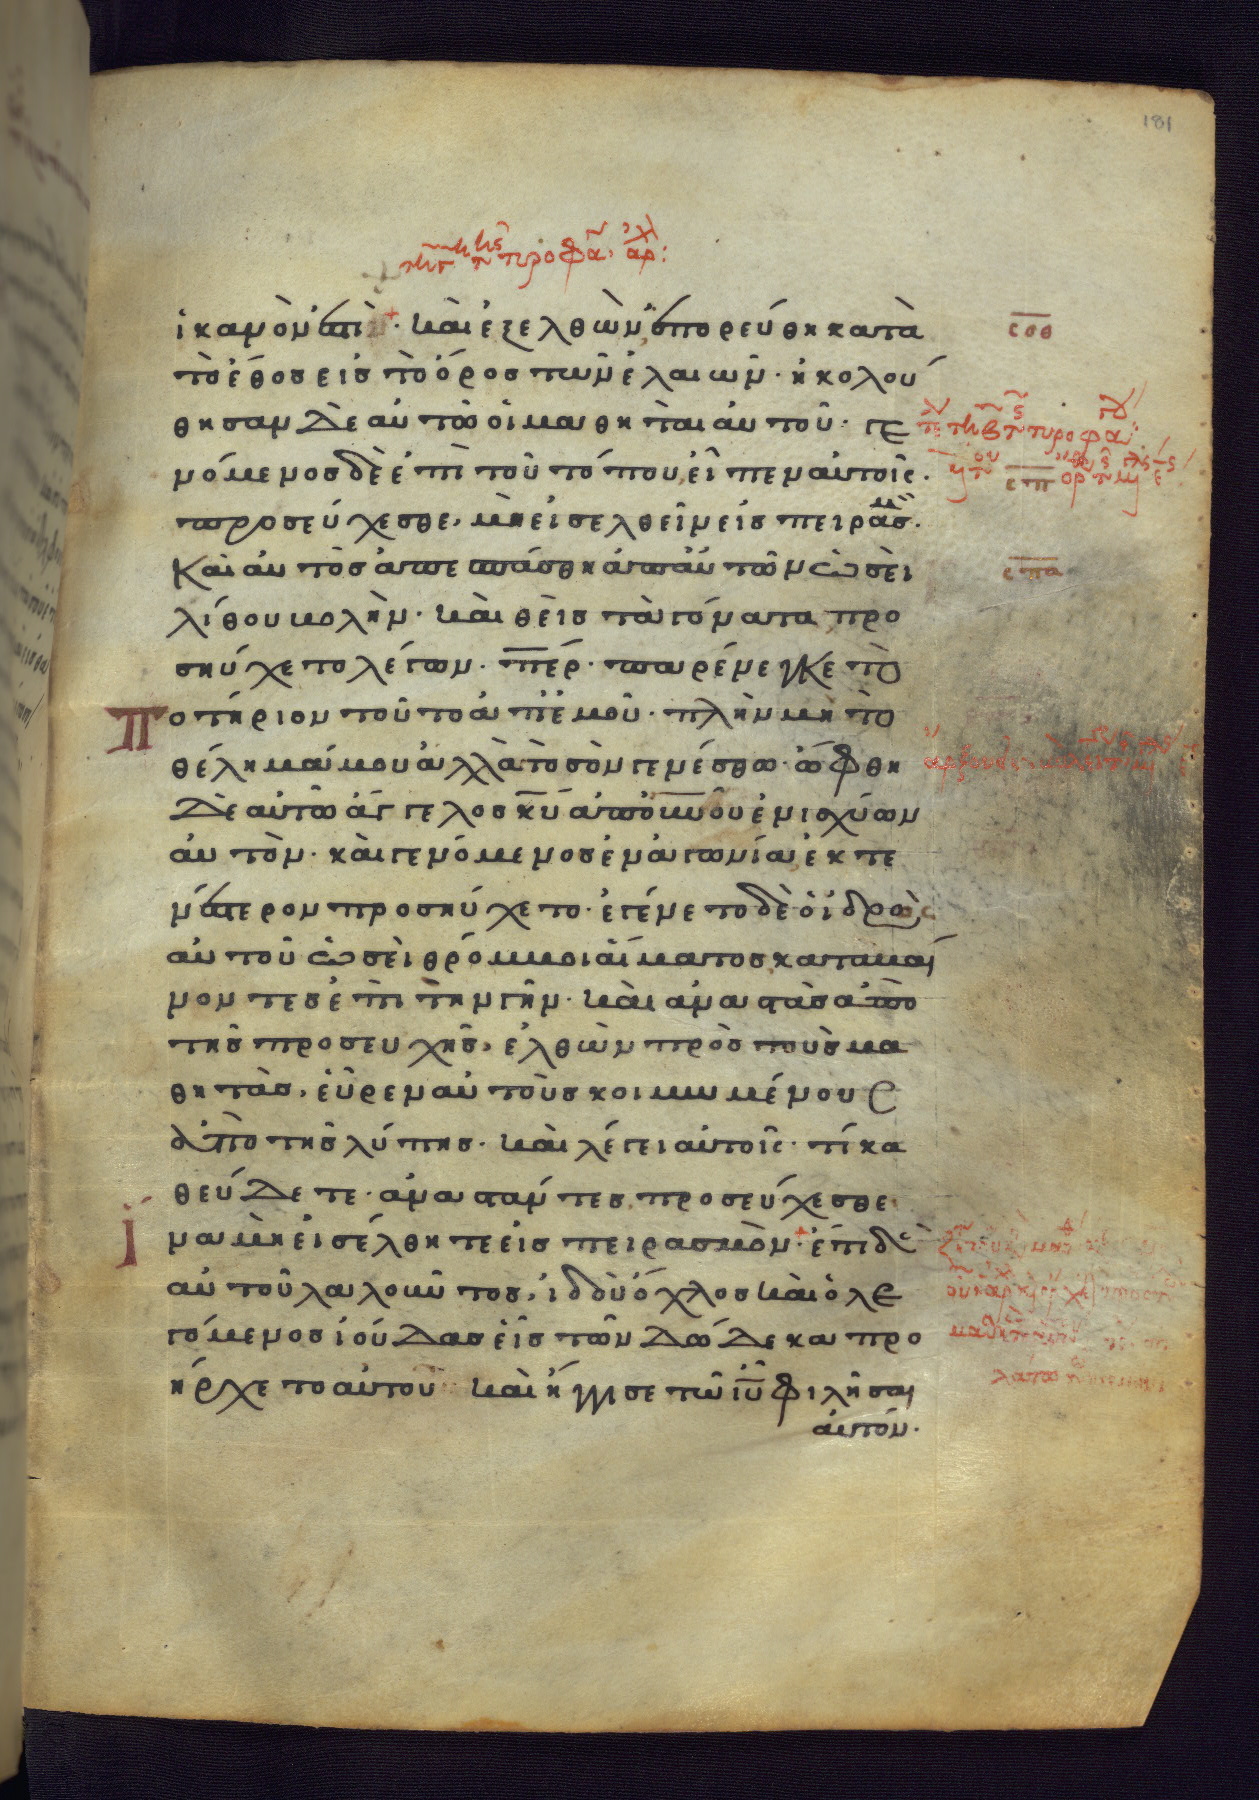 181
ἱκανὸν ἐστὶ· καὶ ἐξελθὼν ἐπορεύθη κατὰ
τὸ ἔθος εἰς τὸ ὄρος τῶν ἐλαιῶν· ἠκολού
θησαν δὲ αὐτῶ οἱ μαθηταὶ αὐτοῦ· γε
νόμενος δὲ ἐπὶ τοῦ τόπου, εἶπεν αὐτοῖς·
προσεύχεσθε, μὴ εἰσελθεῖν εἰς πειρασμ·
Καὶ αὐτὸς ἀπεσπάσθη ἀπ αὐτῶν ὡσεὶ
λίθου βολὴν· καὶ θεὶς τὰ γόνατα προ
σηύχετο λέγων· περ· παρένεγκε τὸ
ποτήριον τοῦτο ἀπ ἐμοῦ· πλὴν μὴ τὸ
θέλημά μου ἀλλὰ τὸ σὸν γενέσθω· ὤφθη
δὲ αὐτῶ ἄγγελος κυ ἀπ οὐνου ἐνισχύων
αὐτὸν· καὶ γενόμενος ἐν ἀγωνία ἐκτε
νέστερον προσηύχετο· ἐγένετο δὲ ὁ ἱδρὼς
αὐτοῦ ὡσεὶ θρόμβοι αἵματος καταβαί
νοντες ἐπὶ τὴν γῆν· καὶ ἀναστὰς ἀπὸ
τῆς προσευχῆς, ἐλθὼν πρὸς τοὺς μα
θητὰς, εὗρεν αὐτοὺς κοιμωμένους
ἀπὸ τῆς λύπης· καὶ λέγει αὐτοῖς· τί κα
θεύδετε· ἀναστάντες προσεύχεσθε
ἵνα μὴ εἰσέλθητε εἰς πειρασμὸν· ἔτι δὲ
αὐτοῦ λαλοῦντος, ἰδοὺ ὄχλος καὶ ὁ λε
γόμενος ἰούδας εἷς τῶν δώδεκα προ
ήρχετο αὐτοὺ καὶ ἤγγισε τῶ ιυ φιλῆσαι
αὐτόν·